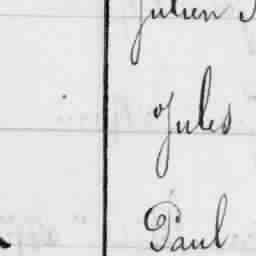 Julien
Jules
Paul